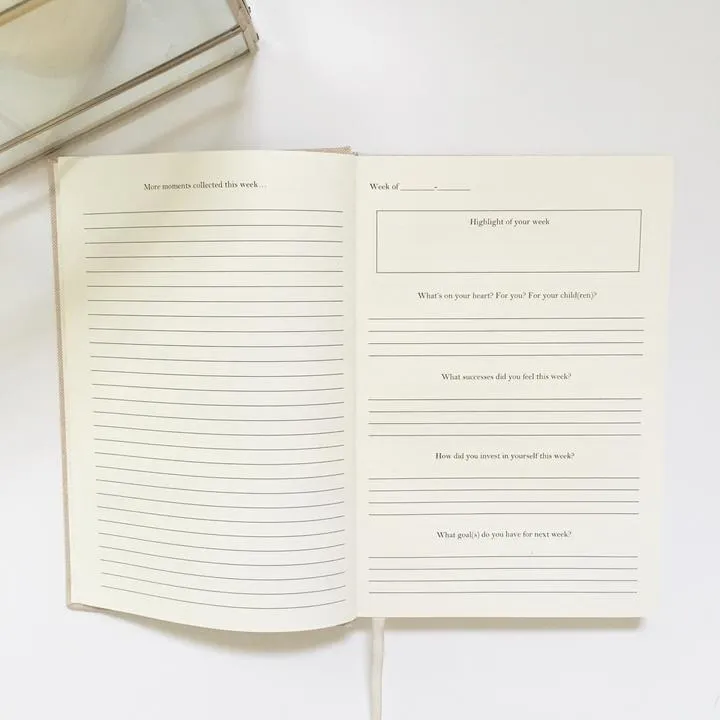 More moments collected this week...
Week of ________-________
Highlight of your week
What's on your heart? For you? For your child(ren)?
What successes did you feel this week?
How did you invest in yourself this week?
What goal(s) do you have for next week?